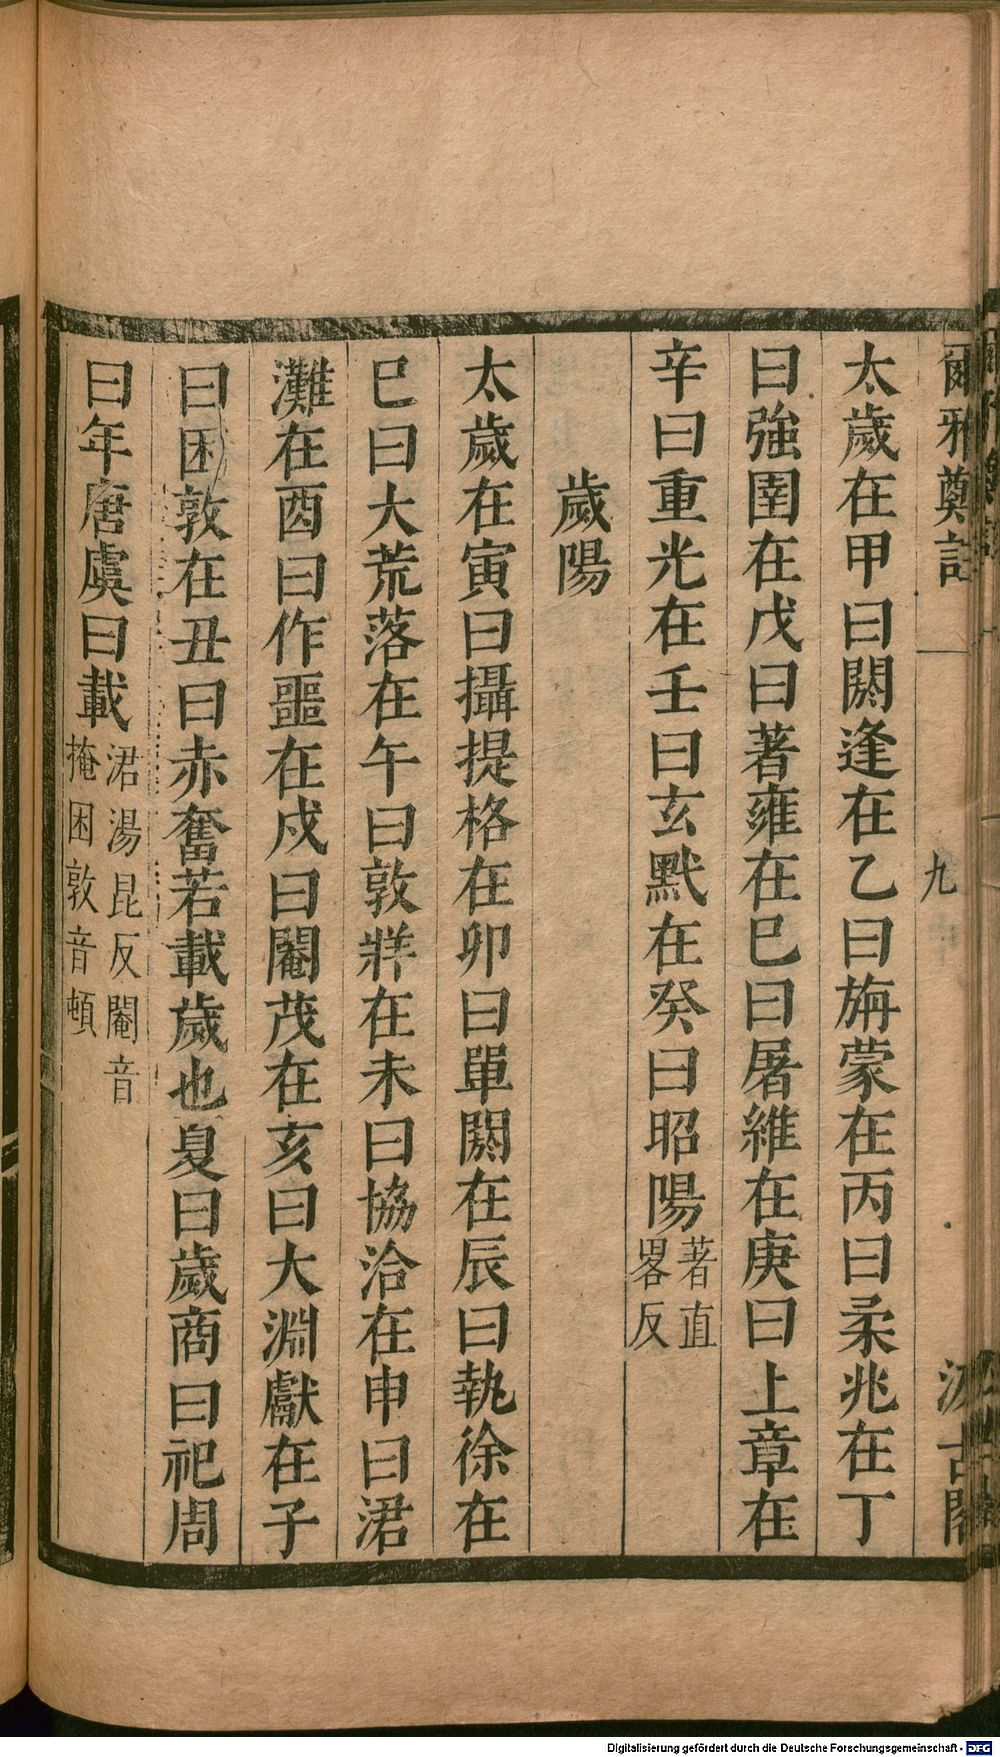 爾雅奠註
九
汲古閣
太歲在甲曰閼逢在乙曰旃蒙在丙曰柔兆在丁
曰強圉在戊曰著雍在巳曰屠維在庚曰上章在
辛曰重光在壬曰玄黓在癸曰昭陽
著直
畧反
歲陽
太歲在寅曰攝提格在卯曰單閼在辰曰執徐在
巳曰大荒落在午曰敦牂在未曰協洽在申曰涒
灘在酉曰作噩在戍曰閹茂在亥曰大淵獻在子
曰困敦在丑曰赤奮若載歲也夏曰歲商曰祀周
曰年唐虞曰載
涒湯昆反閹音
掩困敦音頓
Digitalisierung gefördert durch die Deutsche Forschungsgemeinschaft - DFG